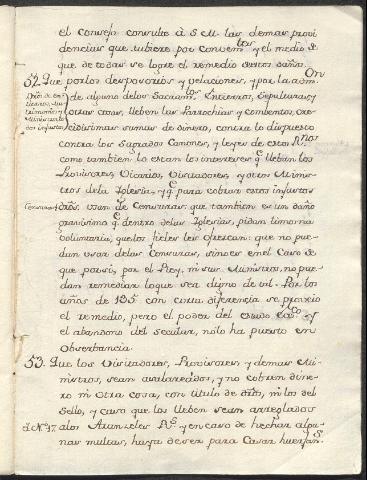 el Consejo consulte à S. M. las demas provi
dencias que tubiere por conven.tes y el medio de
que de todas se logre el remedio destos daños.
52. Que por los desposorios y velaciones, y por la adm.on
de alguno delos Sacram.tos Entierros, Sepulturas, y
otras cosas, lleben las Parrochias y combentos, cre
cidisimas sumas de dinero, contra lo dispuesto
contra los Sagrados Canones, y leyes de estos R.nos
como tambien lo estan los intereses q.e lleban los
Provisores, Vicarios, Visitadores, y otros Minis
tros dela Iglesia, y q.e para cobrar estos injustos
Censuras
dros. usan de Censuras: que tambien es un daño
gravisimo q.e dentro delas Iglesias, pidan limosna
voluntaria, quelos fieles les ofrescan: que no pue
dan usar delas Censuras, sino es en el Caso de
que por si, por el Rey, ni sus Ministros, no pue
dan remediar loque sea digno de tal. Por los
años de 135 con corta diferencia se proveio
el remedio, pero el poder del estado Ecc.co y
el abandono del secular, nolo ha puesto en
Observancia.
53. Que los Visitadores, Provisores, y demas Mi
nistros, sean asalareados, y no cobren dine
ro ni otra cosa, con titulo de dros, ni los del
sello, y caso que los lleben sean arreglados
el N.o 47.
alos Aranzeles R.s y en caso de hechar algu
nas multas, haya de ser para Casar huerfan.s